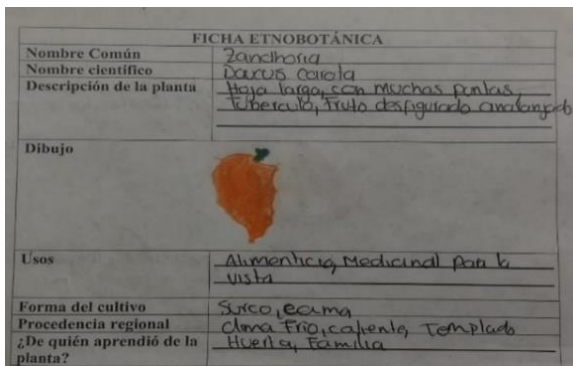 FICHA ETNOBOTÁNICA
Nombre Común Zandhoria
Nombre científico Darcus carola
Descripción de la planta Hoja larga, con muchas puntas,
tuberculo, Fruto desfigurado analanjado
Dibujo
Usos Alimenticia, Medicinal para la
vista
Forma del cultivo Surco, cama
Procedencia regional Clima Frio, caliente, Templado
¿De quién aprendió de la Huerta, Familia
planta?